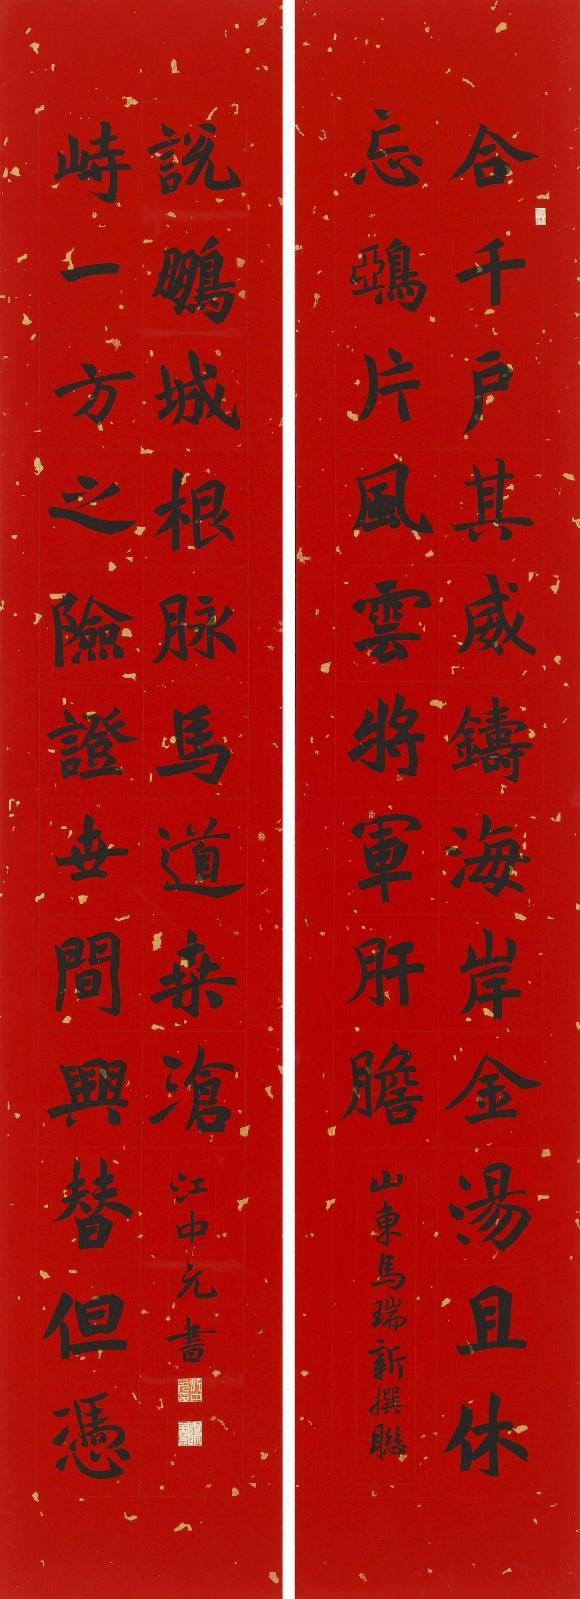 合千户其威鑄海岸金湯且休
忘鵶片風雲將軍肝膽
山東馬瑞新撰聯
峙一方之險證世間興替但憑
說鵬城根脉馬道桒滄
江中元書